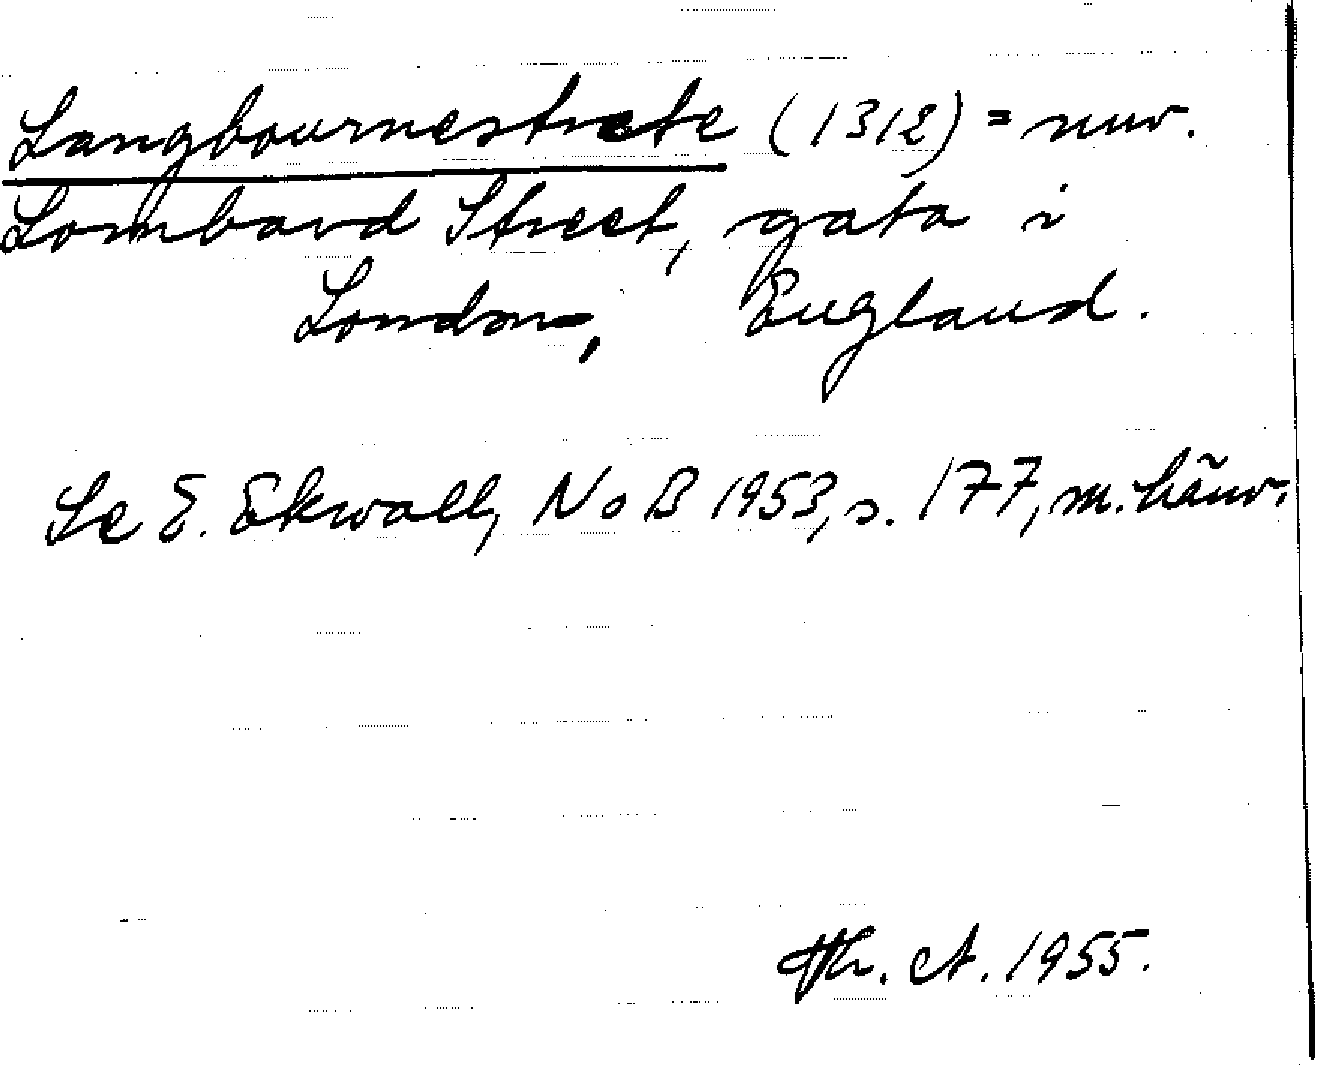 Langbournestrete (1312) = nuv.
Lombard Street, gata i
London, England.
Se E. Ekwall, NoB 1953, s. 177, m. hänv.
Th. A. 1955.